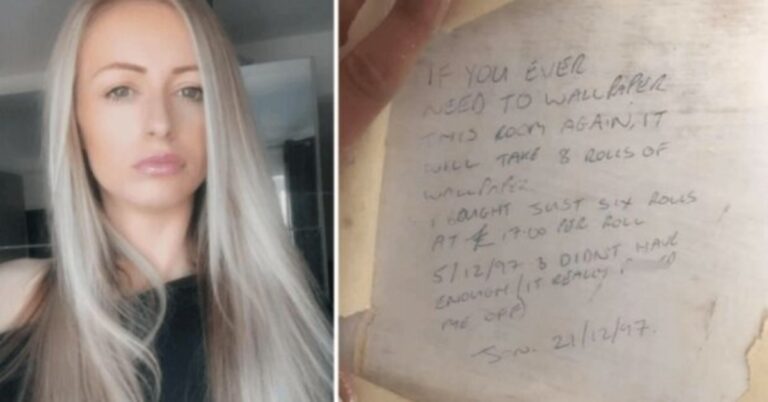 IF YOU EVER
NEED TO WALLPAPER
THIS ROOM AGAIN, IT
WILL TAKE 8 ROLLS OF
WALLPAPER
I BOUGHT JUST SIX ROLLS
AT £17.00 PER ROLL
5/12/97 & DIDN'T HAVE
ENOUGH (IT REALLY
ME OFF)
JON. 21/12/97.